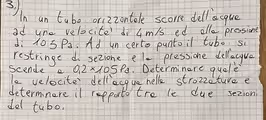 3.)
In un tubo orizzontale scorre dell'acqua
ad una velocità di 4 m/s ed alla pressione
di 105 Pa. Ad un certo punto il tubo si
restringe di sezione e la pressione dell'acqua
scende a 0,2*105 Pa. Determinare qual'è
la velocità dell'acqua nella strozzatura e
determinare il rapporto tra le due sezioni
del tubo.